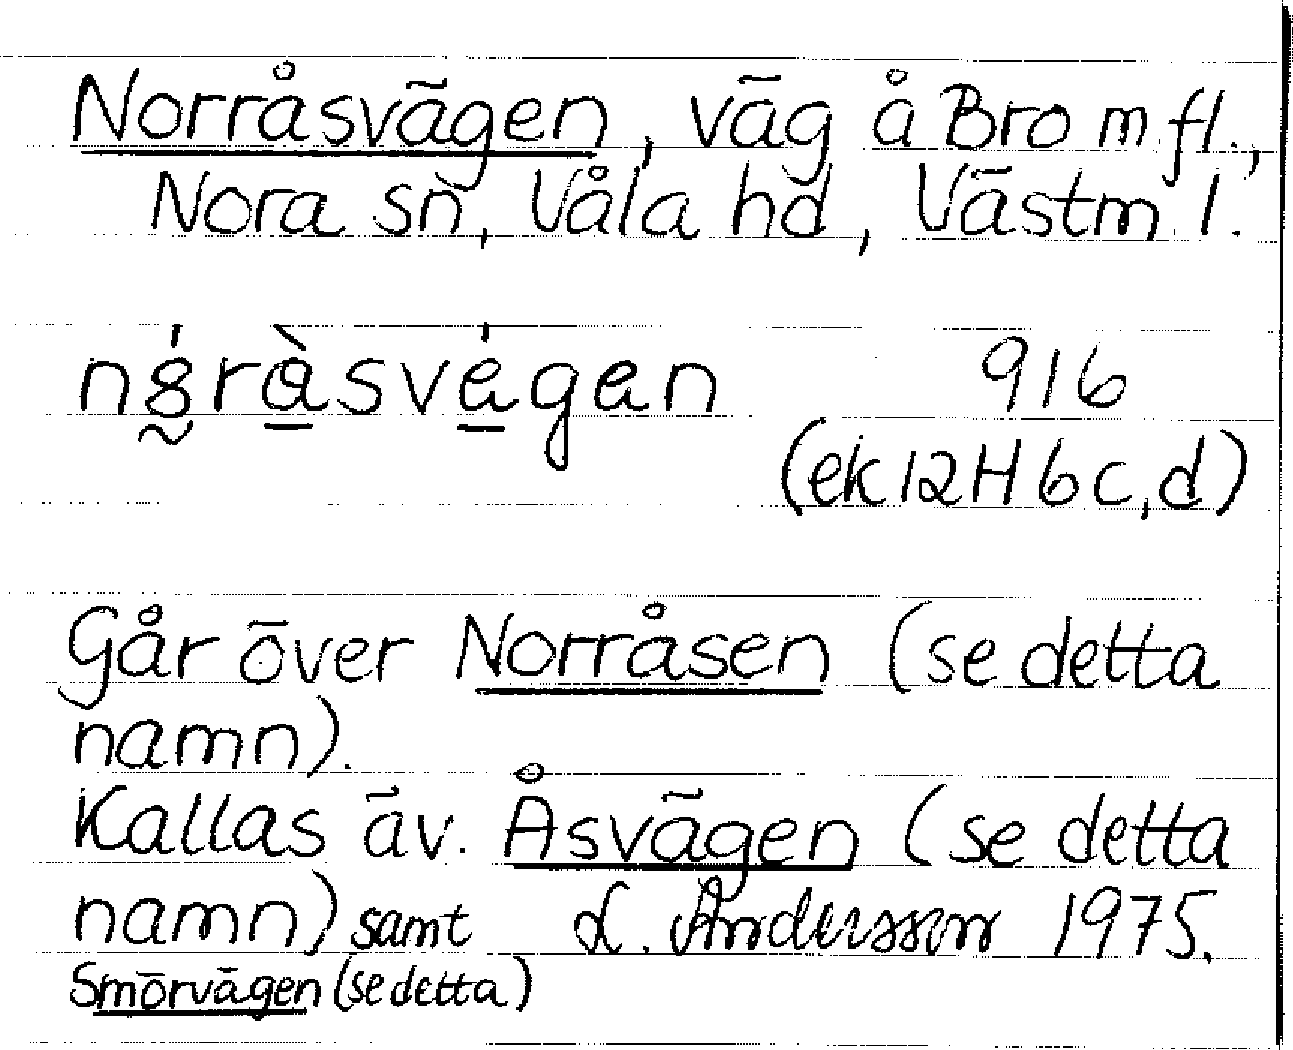 Norråsvägen, väg å Bro m fl.,
Nora sn, Våla hd, Västm l.
916
(ek 12H 6c,d)
Går över Norråsen (se detta
namn).
Kallas äv. Åsvägen (se detta
namn) samt L. Andersson 1975.
Smörvägen (se detta)